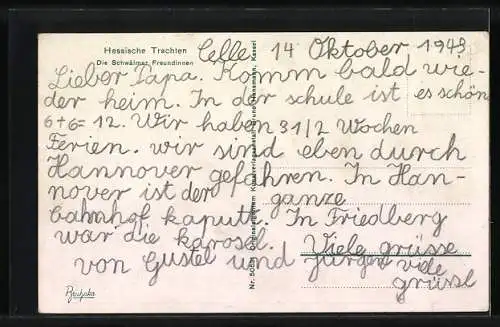 Hessische Trachten
Die Schwälmer Freundinnen
Celle, 14 Oktober 1943
Lieber Papa. Komm bald wie-
der heim. In der schule ist es schön
6+6=12. Wir haben 3 1/2 Wochen
Ferien. wir sind eben durch
Hannover gefahren. In Han-
nover ist der ganze
bahnhof kaputt. In Friedberg
war die karosel.
Viele grüsse
von Gustel und Jürgen viele
grüssl